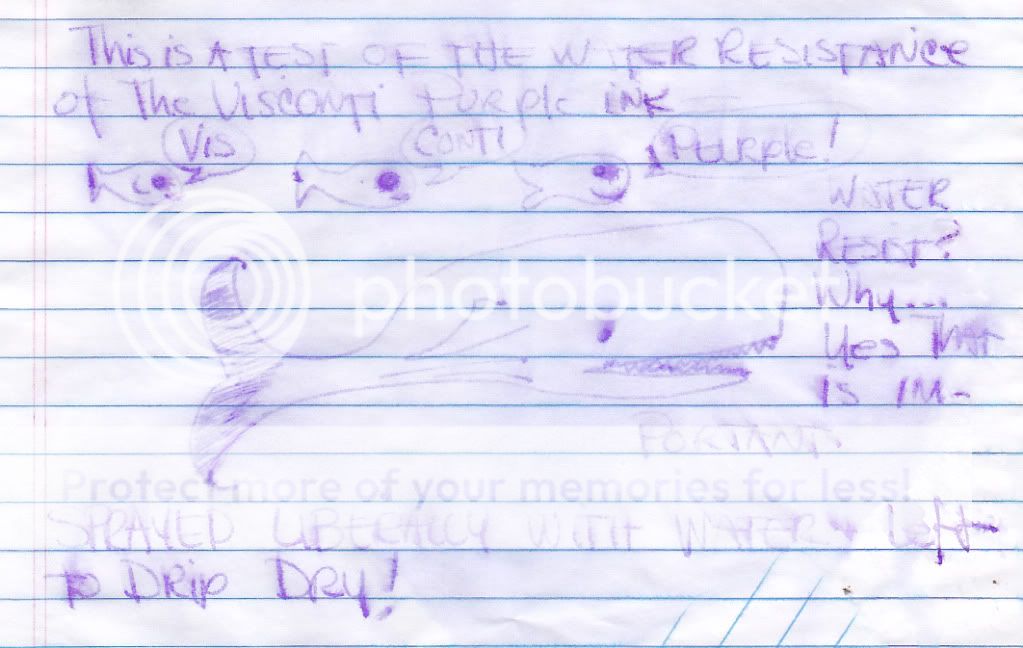 This is A TEST OF THE WATER RESISTANCE
of The Visconti Purple INK
Vis
CONTI
Purple!
WATER
RESIST?
Why...
Yes That
IS IM-
PORTANT
photobucket
Protect more of your memories for less!
SPRAYED LIBERALLY WITH WATER & Left
to Drip Dry!